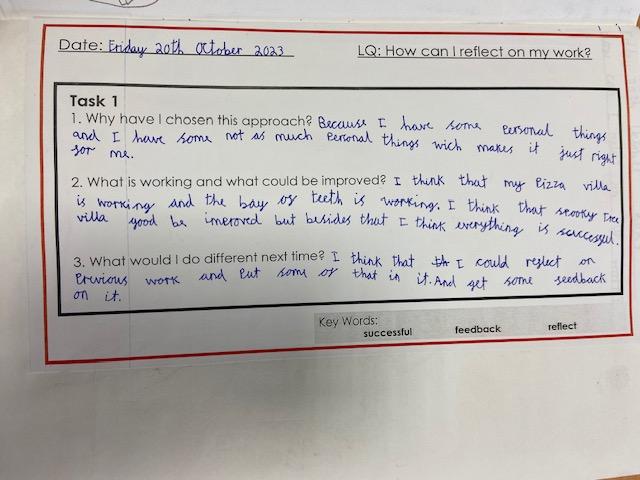 Date: Friday 20th October 2023
LQ: How can I reflect on my work?
Task 1
1. Why have I chosen this approach? Because I have some Personal things
and I have some not as much Personal things wich makes it just right
for me.
2. What is working and what could be improved? I think that my Pizza villa
is working and the bay of teeth is working. I think that spooky tree
villa good be improved but besides that I think everything is successful.
3. What would I do different next time? I think that I could reflect on
Previous work and Put some of that in it. And get some feedback
on it.
Key Words:
successful feedback reflect